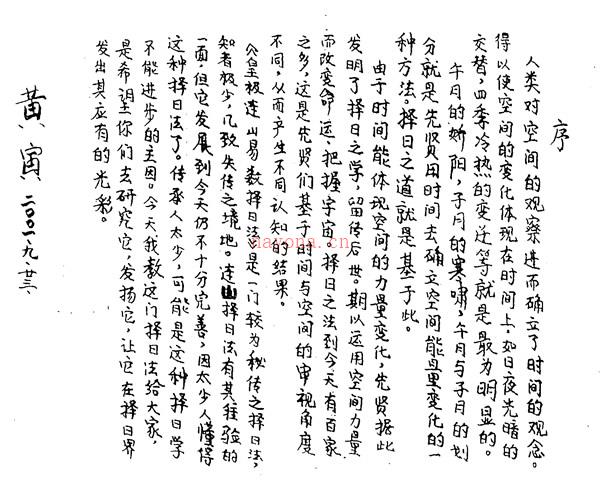 序
人类对空间的观察进而确立了时间的观念。
得以使空间的变化体现在时间上,如日夜光暗的
交替,四季冷热的变迁等就是最为明显的。
午月的娇阳,子月的寒啸,午月与子月的划
分就是先贤用时间去确立空间能量变化的一
种方法。择日之道就是基于此。
由于时间能体现空间的力量变化,先贤据此
发明了择日之学,留传后世。期以运用空间力量
而改变命运、把握宇宙。择日之法到今天有百家
之多,这是先贤们基于时间与空间的审视角度
不同,从而产生不同认知的结果。
皇极连山易数择日法是一门较为秘传之择日法,
知者极少,几致失传之境地。连山择日法有其独验的
一面,但它发展到今天仍不十分完善,因太少人懂得
这种择日法了。传承人太少,可能是这种择日学
不能进步的主因。今天我教这门择日法给大家,
是希望你们去研究它,发扬它,让它在择日界
发出其应有的光彩。
黄寅 二00一九、廿三
nayona.cn